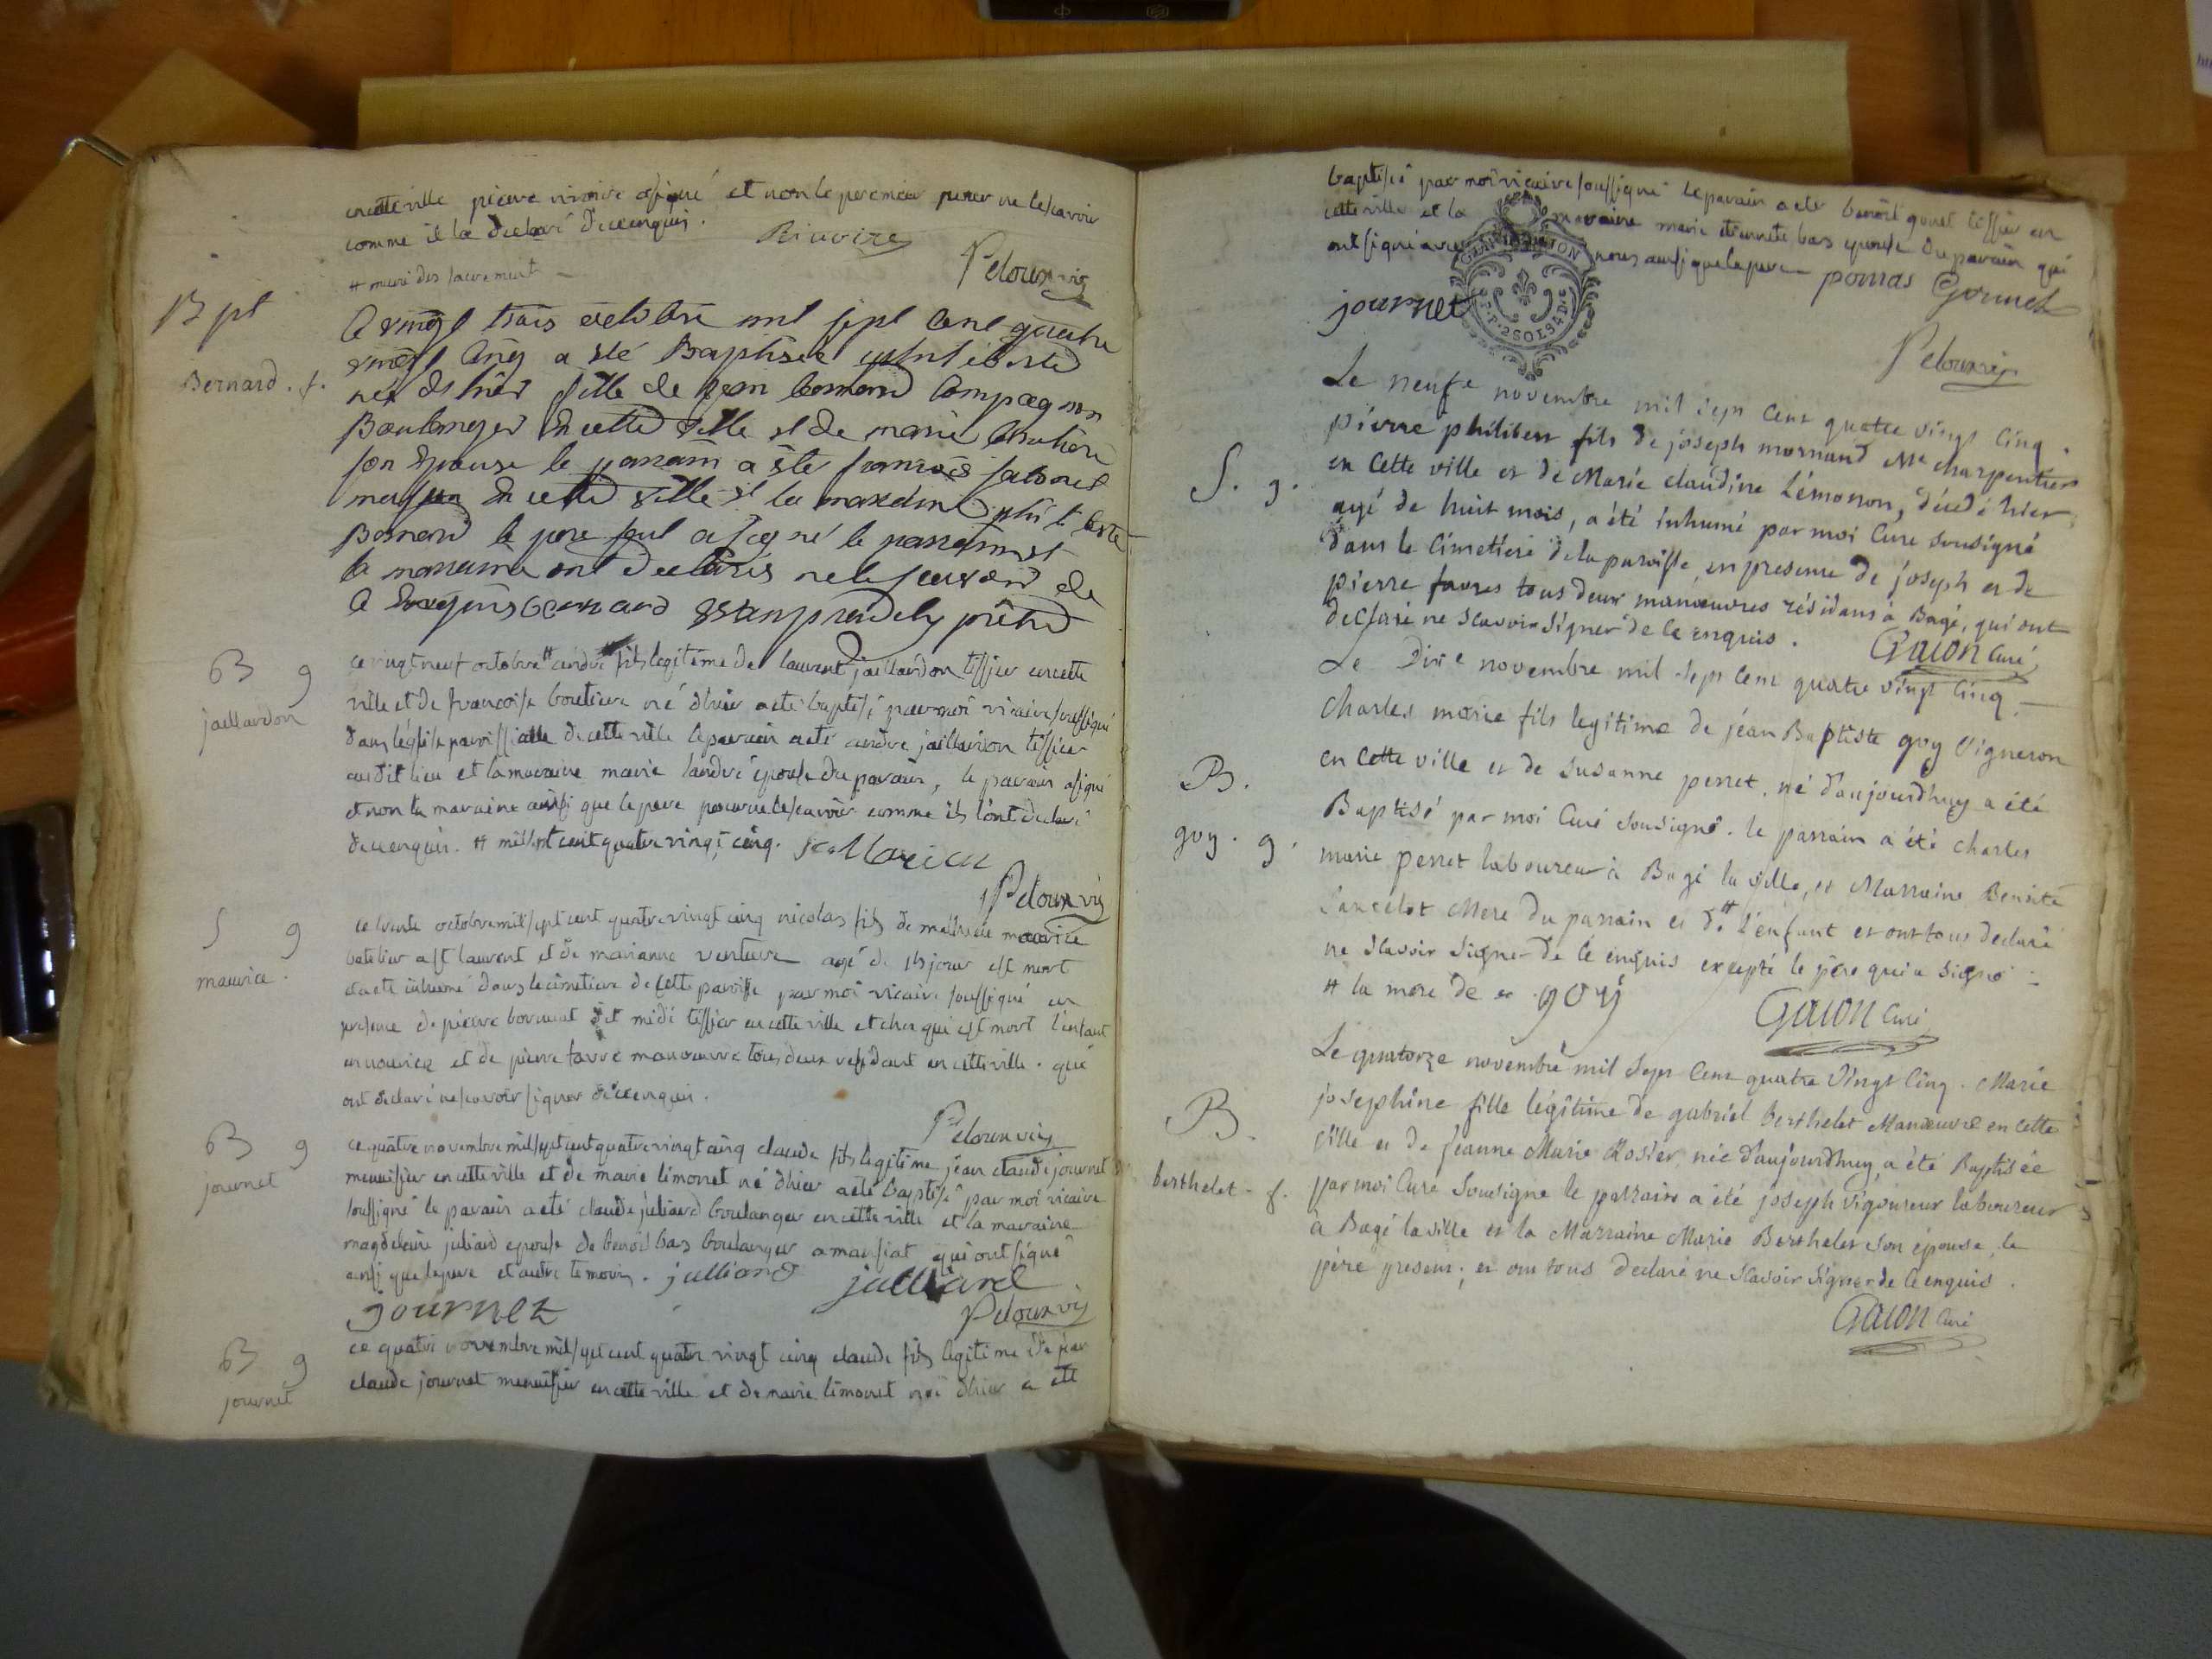 en cette ville pierre riviere asigné et non le premier pour ne le scavoir
comme il la declaré de ce enquis.
Riavoire
Peloux vic
# muni des sacrement
Bpt
Le vingt trois octobre mil sept cent quatre
vingt cinq a été Baptisée
Bernard . f.
née d'hier fille de jean bernard compagnon
Boulanger en cette ville et de marie
son Epouse le parrain a été francois
en cette ville et la
Bernard le pere seul a signé le parrain et
la marraine ont declarés ne le scavoir de
ce enquis bernard prêtre
B g
ce vingt neuf octobre # andré fils legitime de laurent jaillardon tissier en cette
jaillardon
ville et de francoise boutiere né d'hier a été baptisé par moi vicaire soussigné
dans léglise parroissialle de cette ville le parrain a été andré jaillardon tissier
audit lieu et la maraine marie landré epouse du parain, le parain asigné
et non la maraine ainsi que le pere pour ne le scavoir comme ils l'ont declaré
de ce enquis. # mil sept cent quatre vingt cinq.
Peloux vic
S g
ce trente octobre mil sept cent quatre vingt cinq nicolas fils de mathieu maurice
maurice .
batelier a st laurent et de marianne venture agé de jour est mort
et a été inhumé dans le cimetiere de cette paroisse par moi vicaire soussigné en
presence de pierre bornuat dit midi tissier en cette ville et chez qui est mort l'enfant
en nourice et de pierre favre manoeuvre tous deux residant en cette ville . qui
ont declaré ne scavoir signer de ce enquis .
Peloux vic
B g
ce quatre novembre mil sept cent quatre vingt cinq claude fils legitime jean claude journet
journet
menuisier en cette ville et de marie limonet né d'hier a été baptisé par moi vicaire
soussigné le parain a été claude julliard boulanger en cette ville et la maraine
magdeleine juliard epouse de benoit bas boulanger a mansiat qui ont signé
ainsi que le pere et autre temoins . julliard julliard
journet
Peloux vic
B g
ce quatre novembre mil sept cent quatre vingt cinq claude fils legitime de jean
journet
claude journet menuisier en cette ville et de marie limonet né d'hier a été
baptisé par moi vicaire soussigné le parain a été benoit gonet tissier en
cette ville et la maraine marie etiennete bas epouse du parain qui
ont signé avec nous ainsi que le pere pomas Gonnet
journet
GEN
Pelouxvic
Le neuf.e novembre mil sept cent quatre vingt cinq .
pierre philibert fils de joseph mornand Me charpentier
S. g.
en cette ville et de Marie claudine Lémonon, décédé hier
agé de huit mois, a été inhumé par moi Curé sousigné
dans le Cimetiere de la paroisse, en presence de joseph et de
pierre favres tous deux manœuvres résidans à Bagé, qui ont
déclaré ne scavoir signer de ce enquis . Gacon Curé
Le Dix.e novembre mil sept cent quatre vingt cinq
charles marie fils legitime de jéan Baptiste goy Vigneron
B.
en cette ville et de susanne perret, né d'aujourdhuy a été
Baptisé par moi Curé sousigné. le parrain a été charles
goy . g .
marie perret laboureur à Bagé la ville, et Marraine Benoite
lancelot Mere du parrain et de # l'enfant et ont tous déclaré
ne scavoir signer de ce enquis excepté le pere qui a signé
# la mere de goy
Gacon Curé
Le quatorze novembre mil sept cent quatre vingt cinq . Marie
josephine fille légitime de gabriel berthelet Manœuvre en cette
B.
ville et de jeanne Marie Rosier, née d'aujourdhuy, a été Baptisée
berthelet - f.
par moi Curé sousigné le parrain a été joseph Vigoureux laboureur
à Bagé la ville et la Marraine Marie Berthelet son épouse, le
père present; et ont tous déclaré ne scavoir signer de ce enquis .
Gacon Curé